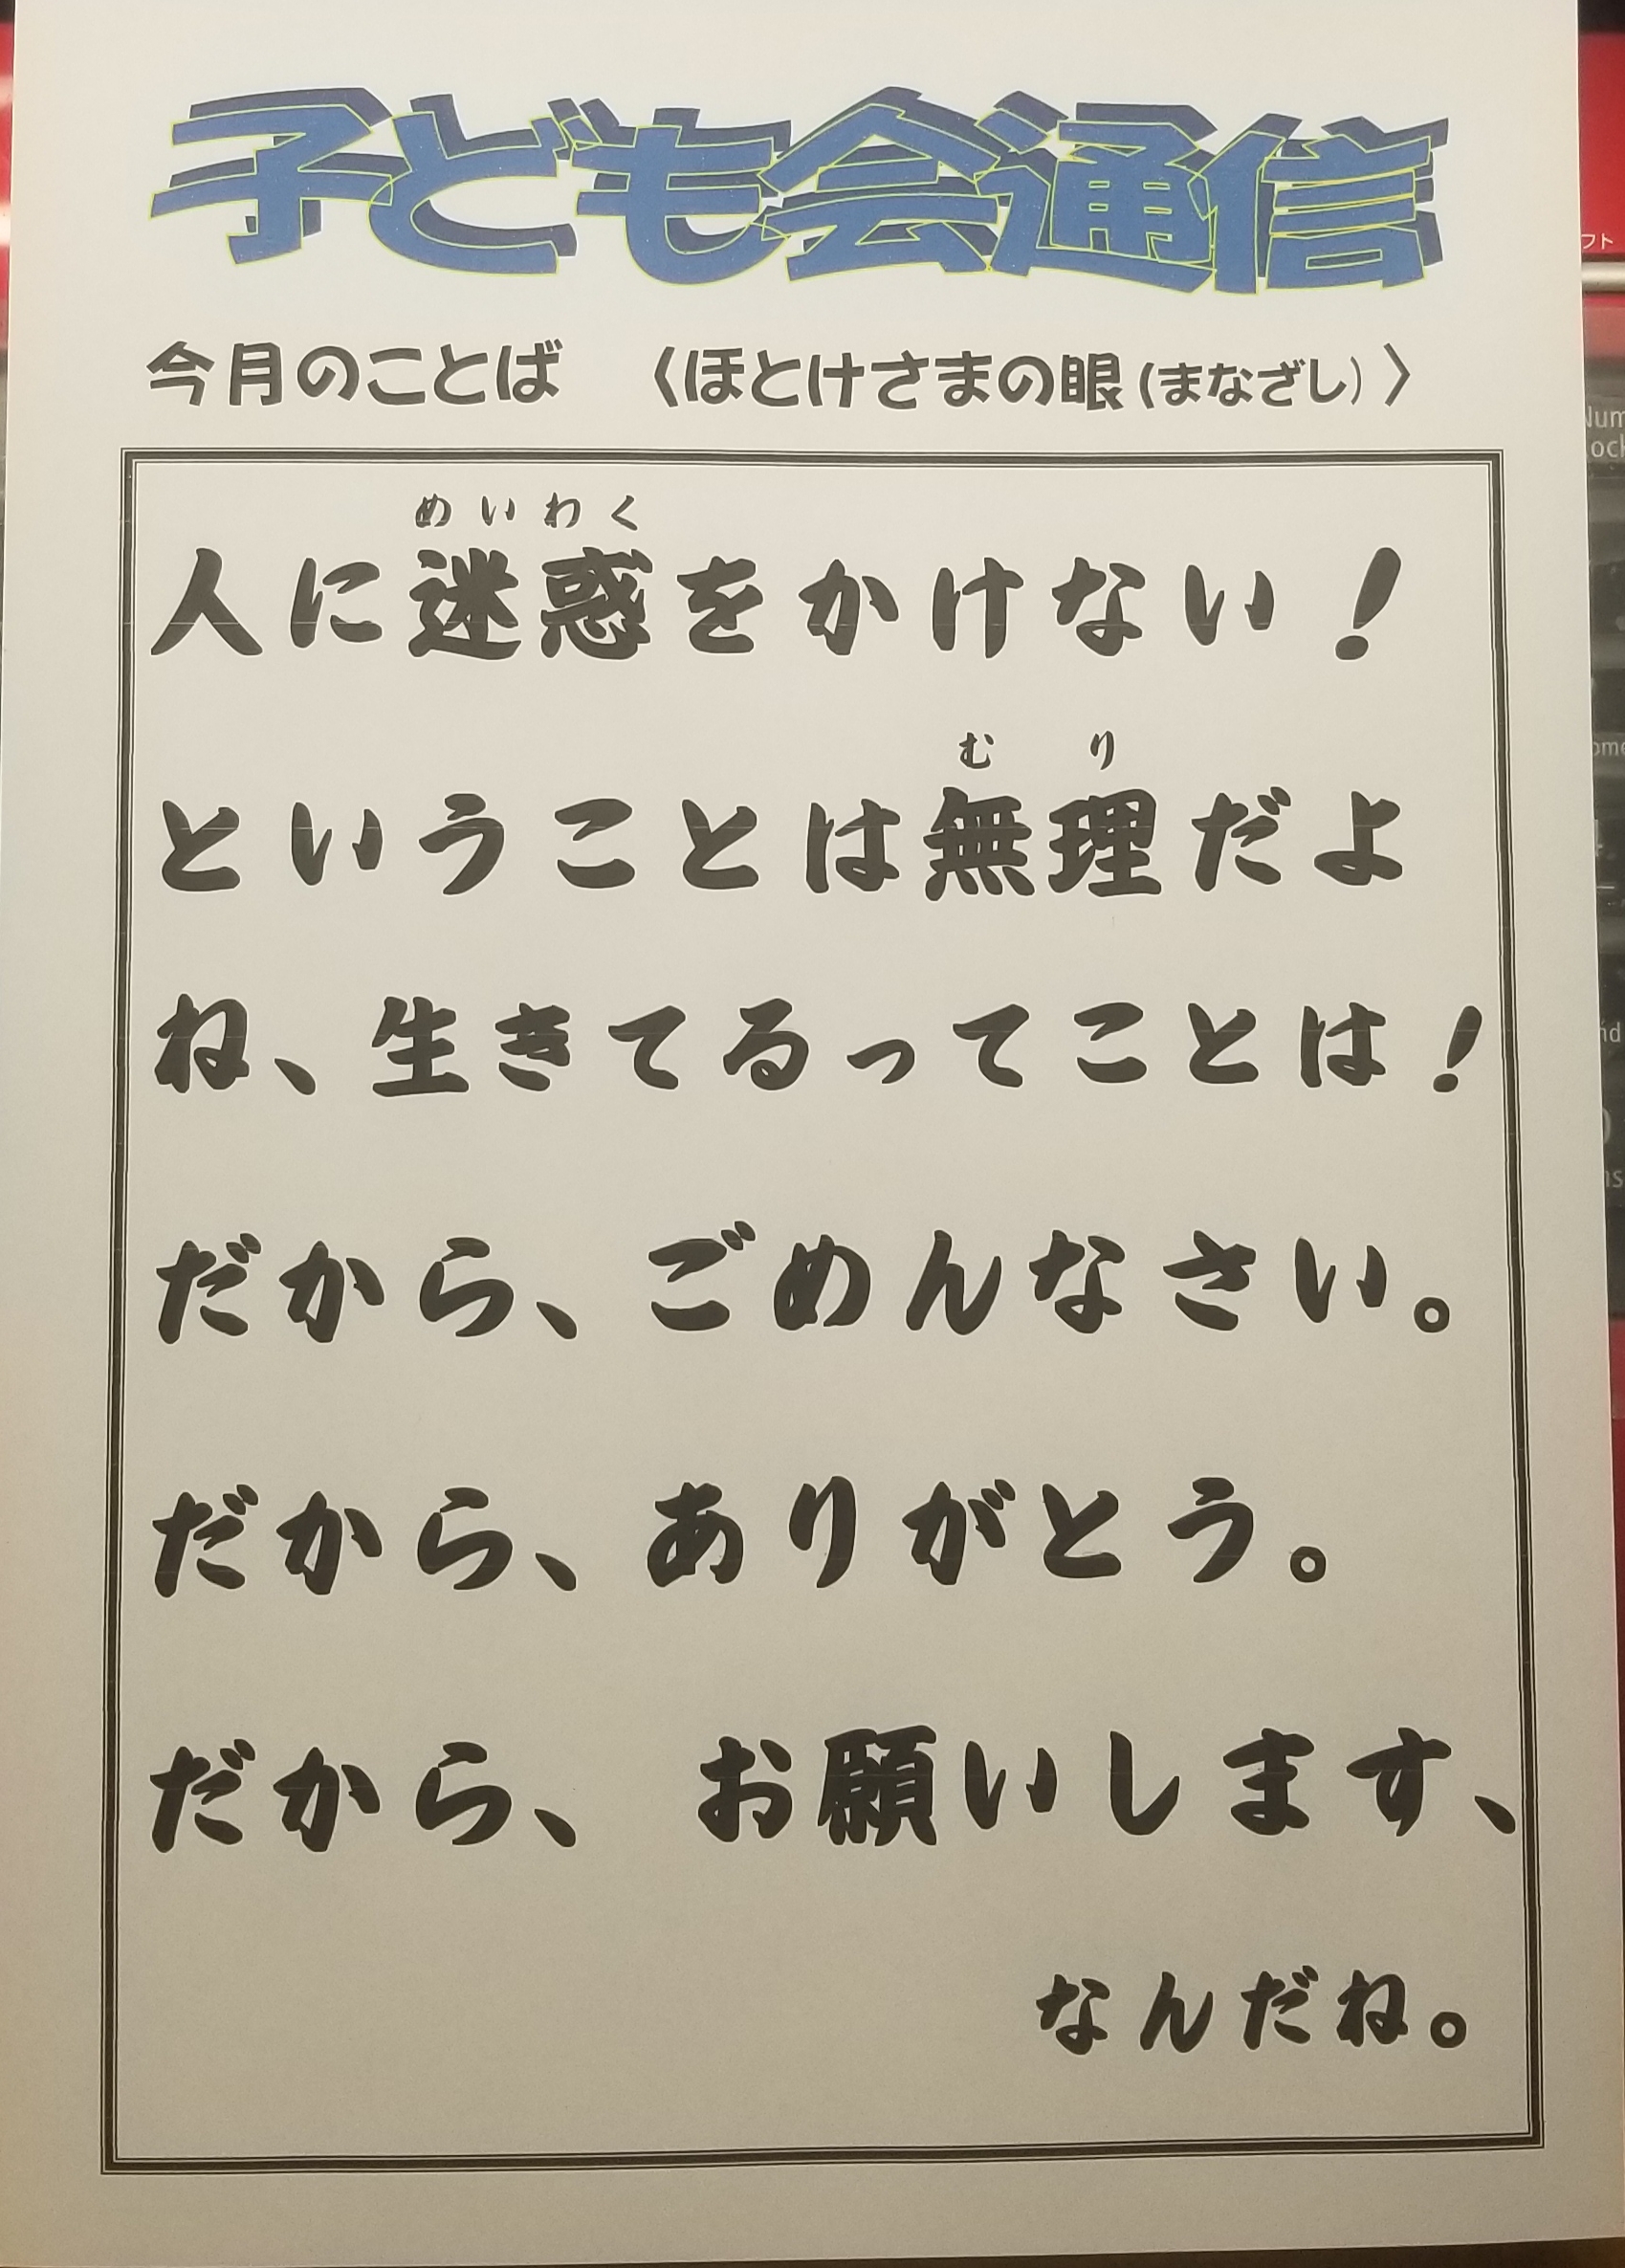 子ども会通信
今月のことば 〈ほとけさまの眼(まなざし)〉
めいわく
人に迷惑をかけない!
むり
ということは無理だよ
ね、生きてるってことは!
だから、ごめんなさい。
だから、ありがとう。
だから、お願いします、
なんだね。
フト